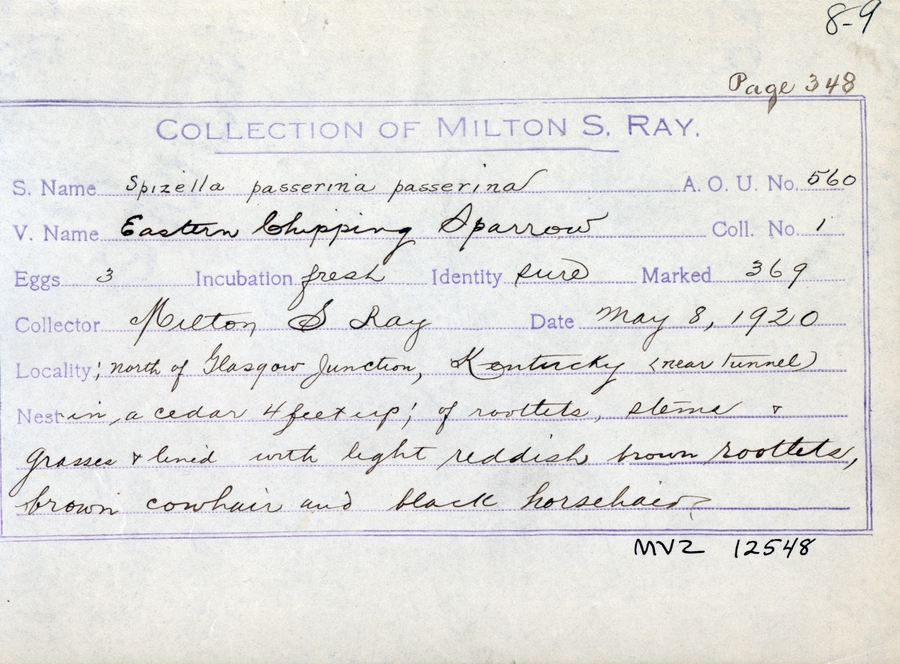 8-9
Page 348
COLLECTION OF MILTON S. RAY.
S. Name Spizella passerina passerina A. O. U. No. 560
V. Name Eastern Chipping Sparrow Coll. No. 1
Eggs 3 Incubation fresh Identity sure Marked 369
Collector Milton S Ray Date May 8, 1920
Locality; north of Glasgow Junction, Kentucky (near Tunnel)
Nest in a cedar 4 feet up; of rootlets, stems &
grasses & lined with light reddish brown rootlets,
brown cowhair and black horsehair.
MVZ 12548